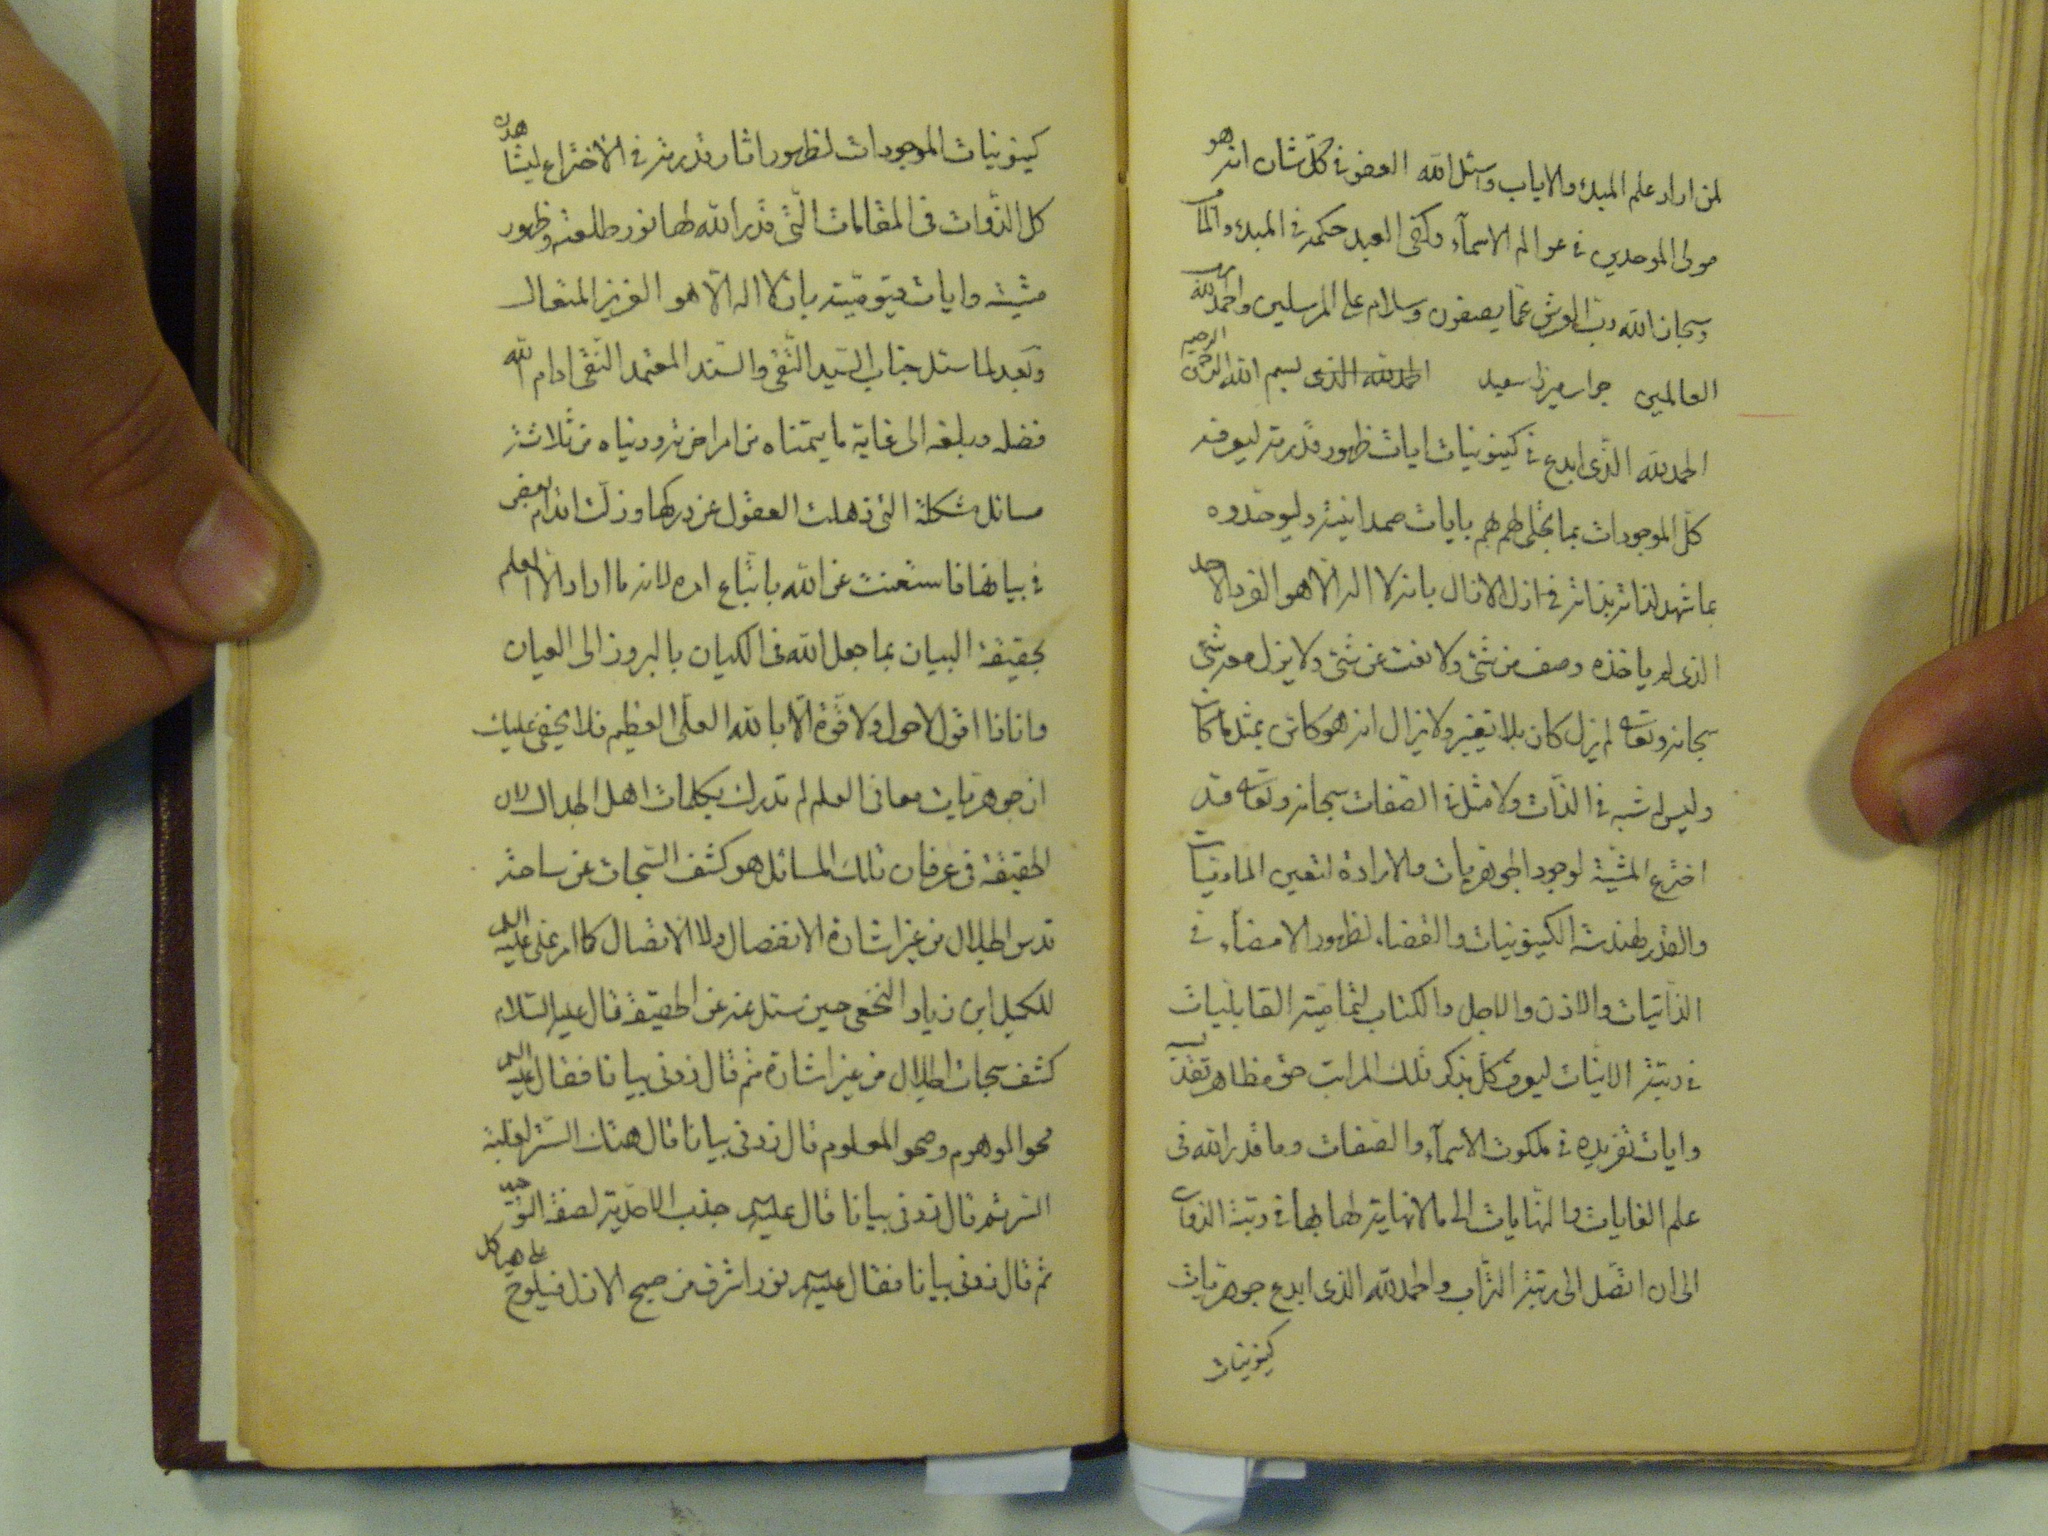 لمن اراد علم المبدء والاياب واسئل الله العفو فى كلّ شان انه هو
مولى الموحدين فى عوالم الاسمآء وكفى العبد حكمه فى المبدء والمآب
وسبحان الله ربّ العرش عمّا يصفون وسلام على المرسلين والحمد لله ربّ
العالمين جواب ميرزا سعيد الحمد لله الذى بسم الله الرحمن الرحيم
الحمد لله الّذى ابدع فى كينونيات ايات ظهور قدرته ليوقنه
كلّ الموجودات بما تجلّى لهم بهم بايات صمدانيته وليوحّدوه
بما شهد لذاته بذاته فى ازل الازال بانه لا اله الّا هو الفرد الاحد
الذى لم ياخذه وصف من شئ ولا نعت عن شئ ولا يزل معه شئ
سبحانه وتعالى لم يزل كان بلا تغيير ولا يزال انه هو كائن بمثل ما كان
وليس له شبه فى الذّات ولا مثل فى الصّفات سبحانه وتعالى قد
اخترع المشيّة لوجود الجوهريات والارادة لتعين الماديّات
والقدر لهندسة الكينونيات والقضاء لظهور الامضآء فى
الذّاتيات والاذن والاجل والكتاب لتماميّة القابليات
فى رتبة الانيّات ليوقن كلّ بذكر تلك المراتب حتى مظاهر تقديسه
وايات تفريده فى ملكوت الاسمآء والصّفات وما قدر الله فى
علم الغايات والنّهايات الى ما لا نهاية لها بها فى رتبة الذوات
الى ان اتصّل الى رتبة التّراب والحمد لله الذى ابدع جوهريات
كينونيات
كينونيات الموجودات لظهور اثار قدرته فى الاختراع ليشاهدن
كل الذّوات فى المقامات الّتى قدر الله لها نور طلعته وظهور
مشيّته وايات قيّوميّته بان لا اله الّا هو العزيز المتعال
وبعد لما سئل جناب السّيد التّقى والسّند المعتمد النّقى ادام الله
فضله وبلغه الى غاية ما يتمناه من امر اخرته ودنياه من ثلاثة
مسائل مشكلة التى ذهلت العقول عن دركها وزلّت اقدام البعض
فى بيانها فاستعنت عن الله باتّباع امره لانه ما اراد الّا العلم
بحقيقة البيان بما جعل الله فى الكيان بالبروز الى العيان
وانا ذا اقول لا حول ولا قوّة الّا بالله العلّى العظيم فلا يخفى عليك
ان جوهريات معانى العلم لم تدرك بكلمات اهل الجدال لان
الحقيقة فى عرفان تلك المسائل هو كشف السّبحات عن ساحة
قدس الجلال من غير اشارة الانفصال ولا الاتصال كما امر على عليه السلم
للكميل ابن زياد النخعى حين سئل عنه عن الحقيقة قال عليه السّلام
كشف سبحات الجلال من غير اشارة ثم قال زدنى بيانا فقال عليه السلم
محو الموهوم وصحو المعلوم قال زدنى بيانا قال هتك السّتر لغلبة
السّر ثم قال زدنى بيانا قال عليه السلم جذب الاحديّة لصفة التّوحيد
ثم قال زدنى بيانا فقال عليه السلم نور اشرق من صبح الازل فيلوح على هياكل